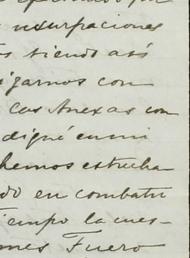 usurpaciones
siendo así
igarnos con
las Anexas con
digné en mi
hemos estrecha
do en combatir
tiempo la cues-
nes Fuero